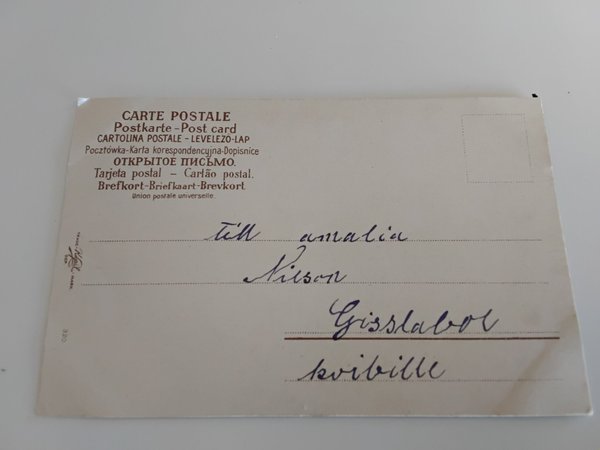 CARTE POSTALE
Postkarte - Post card
CARTOLINA POSTALE - LEVELEZŐ-LAP
Pocztówka-Karta korespondencyjna-Dopisnice
ОТКРЫТОЕ ПИСЬМО.
Tarjeta postal — Cartão postal.
Brefkort-Briefkaart-Brevkort
Union postale universelle.
till amalia
Nilson
Gisslabol
kvibille
320